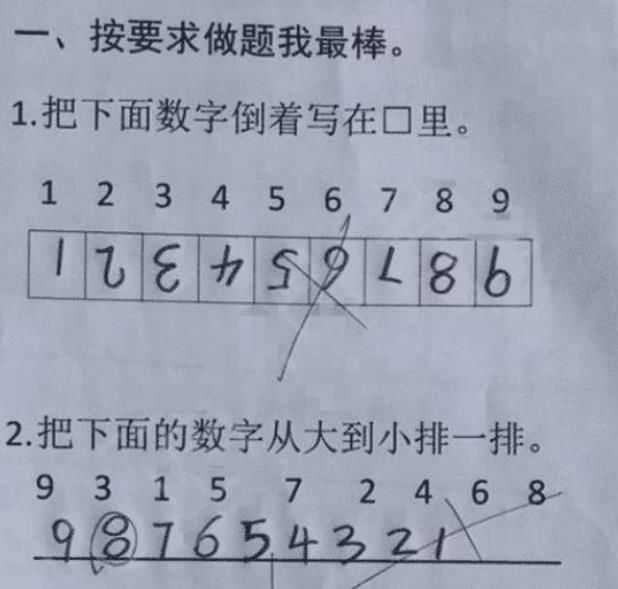 一、按要求做题我最棒。
1.把下面数字倒着写在□里。
1 2 3 4 5 6 7 8 9
1 2 3 4 5 6 7 8 9
2.把下面的数字从大到小排一排。
9 3 1 5 7 2 4 6 8
9 8 7 6 5 4 3 2 1